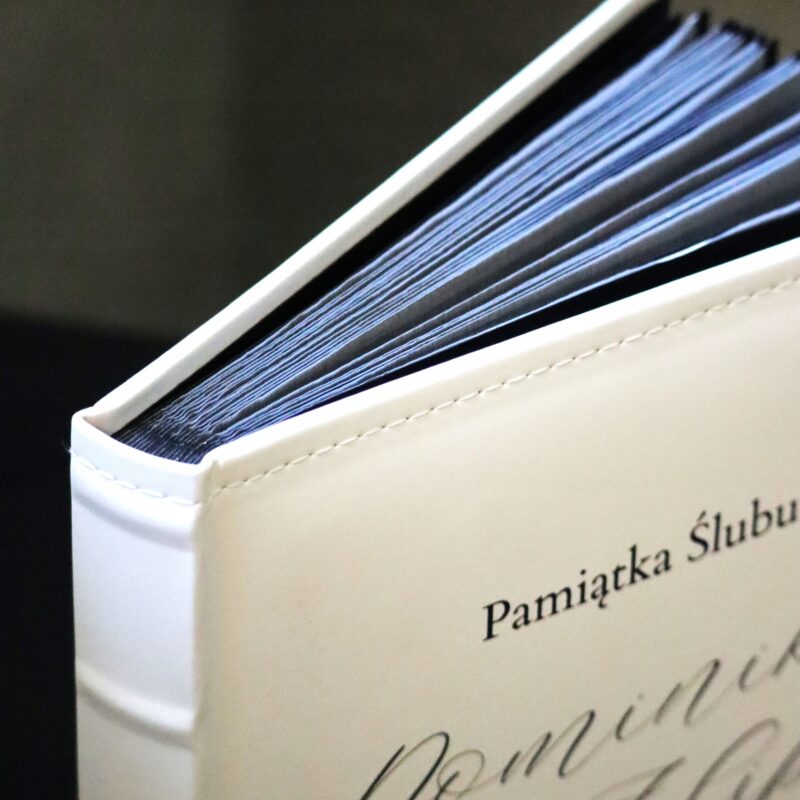 Pamiątka Ślubu
Dominik